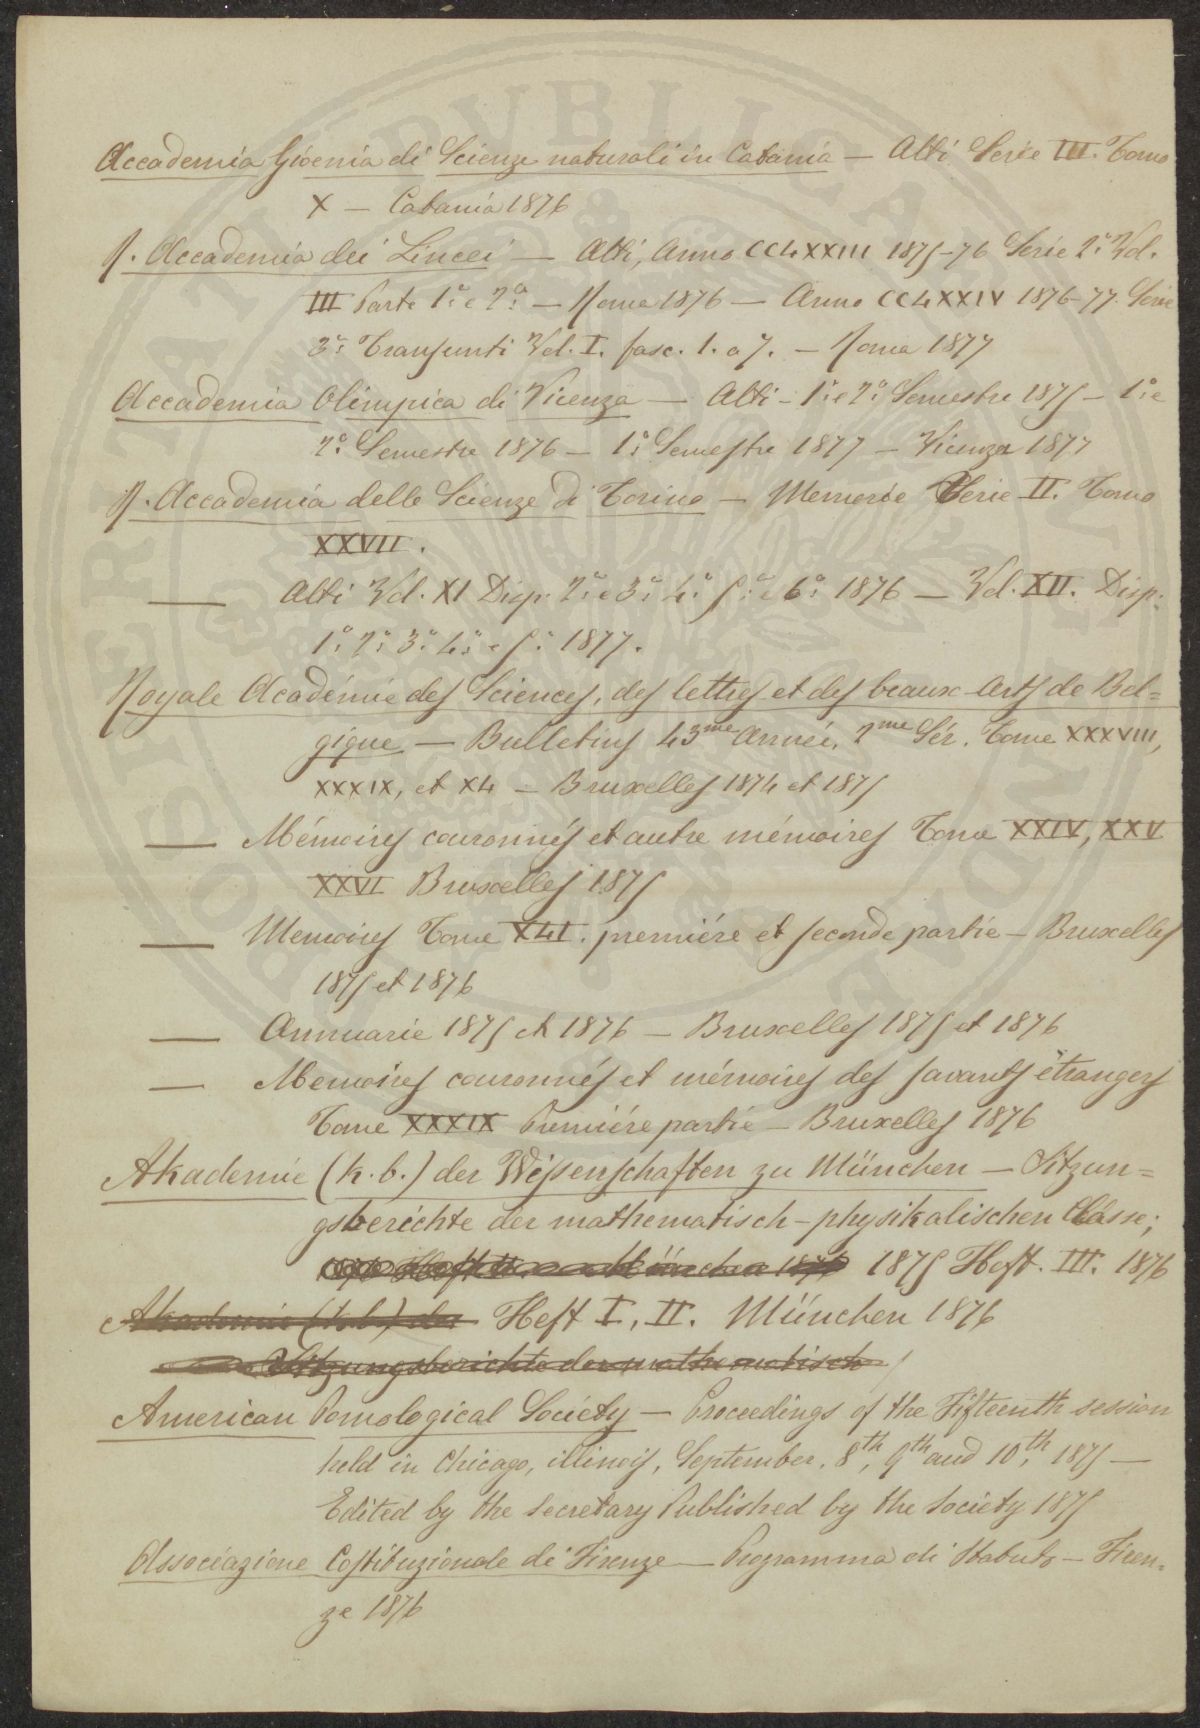 Accademia Gioenia di Scienze naturali in Catania — Atti Serie III. Tomo
X — Catania 1876
R. Accademia dei Lincei — Atti, Anno CCLXXIII 1875-76 Serie 2ª Vol.
III Parte 1ª e 2ª — Roma 1876 — Anno CCLXXIV 1876-77. Serie
3ª Transunti Vol. I. fasc. 1. a 7. — Roma 1877
Accademia Olimpica di Vicenza — Atti - 1º e 2º Semestre 1875 — 1º e
2º Semestre 1876 — 1º Semestre 1877 — Vicenza 1877
R. Accademia delle Scienze di Torino — Memorie Serie II. Tomo
XXVII.
— Atti Vol. XI Disp. 2ª e 3ª 4ª 5ª e 6ª 1876 — Vol. XII. Disp.
1ª 2ª 3ª 4ª e 5ª 1877.
Royale Académie des Sciences, des lettres et des beaux-arts de Bel=
gique — Bulletins 43me Année, 2me Sér. Tome XXXVIII,
XXXIX, et XL — Bruxelles 1874 et 1875
— Mémoires couronnés et autre mémoires Tome XXIV, XXV
XXVI Bruxelles 1875
— Memoires Tome XLI. premiére et seconde partie — Bruxelles
1875 et 1876
— Annuarie 1875 et 1876 — Bruxelles 1875 et 1876
— Memoires couronnés et mémoires des savants étrangers
Tome XXXIX Premiére partie — Bruxelles 1876
Akademie (k. b.) der Wissenschaften zu München — Sitzun=
gsberichte der mathematisch-physikalischen Classe;
1875 Heft. III. 1876
Akademie (k.b.) der Heft I, II. München 1876
Sitzungsberichte der mathematisch
American Pomological Society — Proceedings of the Fifteenth session
held in Chicago, illinois, September, 8th, 9th and 10th, 1875 —
Edited by the secretary Published by the society 1875
Associazione Costituzionale di Firenze — Programma di Statuto — Firen=
ze 1876